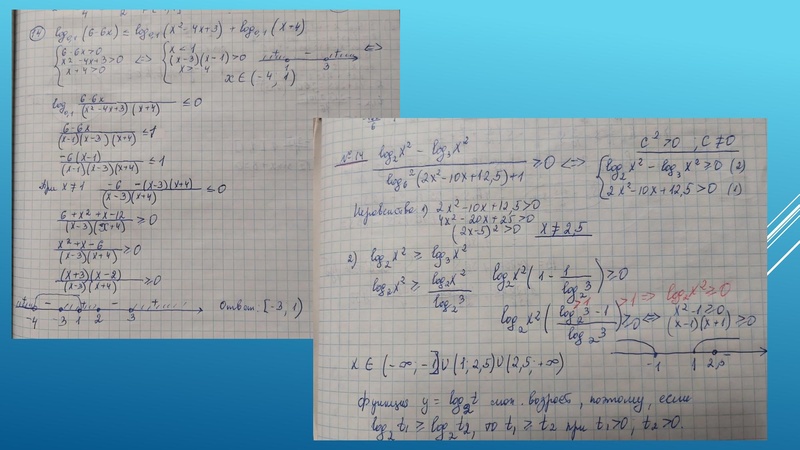 14 log₀,₁(6-6x) ≤ log₀,₁(x²-4x+3) + log₀,₁(x+4)
{6-6x>0
x²-4x+3>0
x+4>0 <=> {x<1
(x-3)(x-1)>0
x>-4
+ - + 1 3 <=>
x∈(-4, 1)
log₀,₁ (6-6x)/((x²-4x+3)(x+4)) ≤ 0
(6-6x)/((x-1)(x-3)(x+4)) ≤ 1
-6(x-1)/((x-1)(x-3)(x+4)) ≤ 1
При x≠1 (-6 -(x-3)(x+4))/((x-3)(x+4)) ≤ 0
(6+x²+x-12)/((x-3)(x+4)) ≥ 0
(x²+x-6)/((x-3)(x+4)) ≥ 0
((x+3)(x-2))/((x-3)(x+4)) ≥ 0
+ - + - + -4 -3 1 2 3
Ответ. [-3, 1)
№14 (log₂x² - log₃x²)/(log₆²(2x²-10x+12,5)+1) ≥ 0 <=>
c²>0, c≠0
{log₂x² - log₃x² ≥ 0 (2)
2x²-10x+12,5>0 (1)
Неравенство 1) 2x²-10x+12,5>0
4x²-20x+25>0
(2x-5)²>0 x≠2,5
2) log₂x² ≥ log₃x²
log₂x² ≥ log₂x²/log₂3
log₂x²(1 - 1/log₂3) ≥ 0
>1 >1 => log₂x²≥0
log₂x²((log₂3-1)/log₂3) ≥ 0 <=> x²-1≥0
(x-1)(x+1)≥0
-1 1 2,5
x∈(-∞; -1]∪(1; 2,5)∪(2,5; +∞)
Функция y=log₂t мон. возраст, поэтому, если
log₂t₁ ≥ log₂t₂, то t₁ ≥ t₂ при t₁>0, t₂>0.